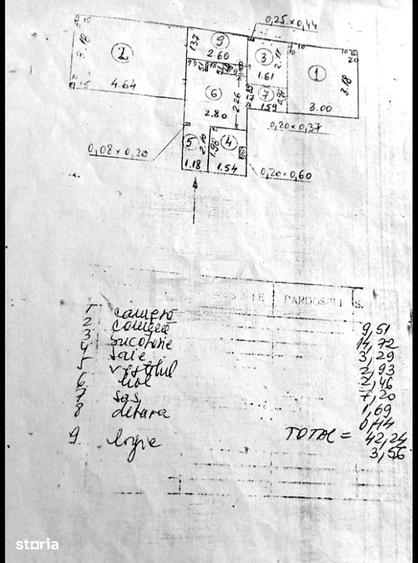 0,25×0,44
9
1.37
2.60
2
3.18
4.64
3
2.11
1.61
1
3.18
3.00
6
2.80
2.26
7
1.59
0,20×0,37
0,08×0,20
5
2.10
1.18
4
1.90
1.54
0,20×0,60
PARDOSELI S.
1 cameră 9,51
2 cameră 14,72
3 3,29
4 baie 2,93
5 vestibul 2,46
6 hol 7,20
7 sas 1,69
8 debara 0,44
TOTAL = 42,24
9 logie 3,56
storia